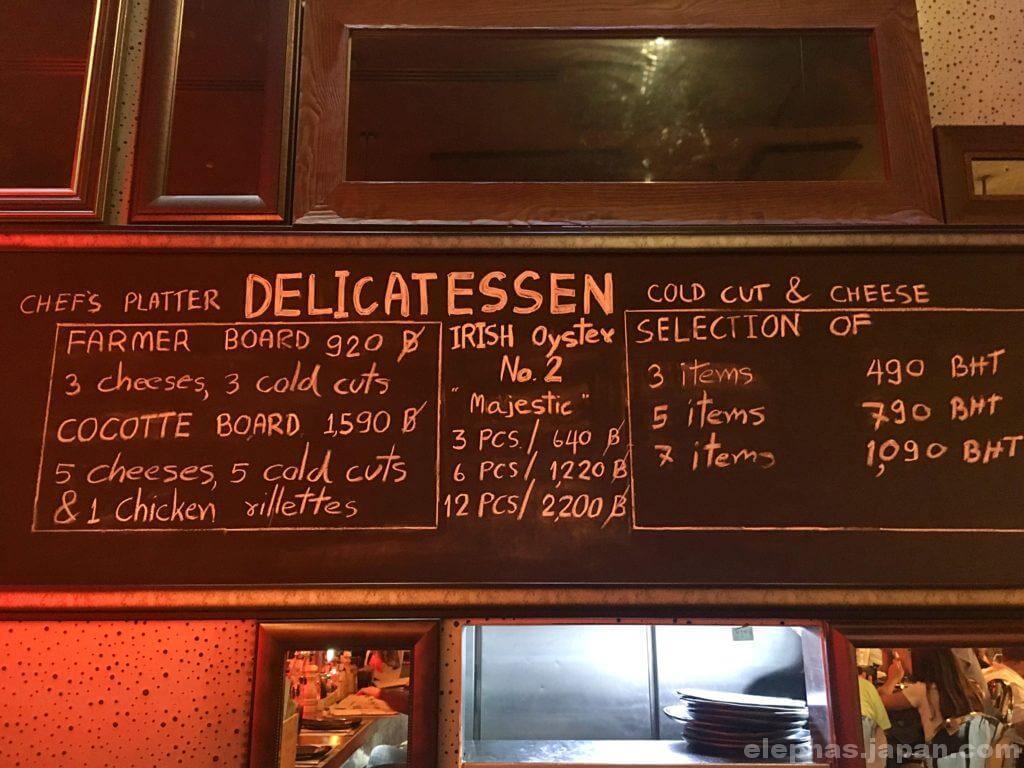 DELICATESSEN
CHEF'S PLATTER
FARMER BOARD 920 ฿
3 cheeses, 3 cold cuts
COCOTTE BOARD 1,590 ฿
5 cheeses, 5 cold cuts
& 1 Chicken rillettes
IRISH Oyster
No. 2
"Majestic"
3 PCS / 640 ฿
6 PCS / 1,220 ฿
12 PCS / 2,200 ฿
COLD CUT & CHEESE
SELECTION OF
3 items 490 BHT
5 items 790 BHT
7 items 1,090 BHT
elephas.japan.com